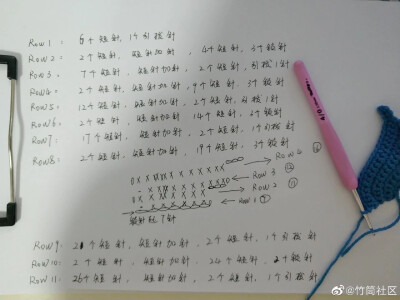 Row1： 6个短针，1个引拔针
Row2： 2个短针，短针加针，4个短针，3个锁针
Row3： 7个短针，短针加针，2个短针，引拔1针
Row4： 2个短针，短针加针，9个短针，3个锁针
Row5： 12个短针，短针加针，2个短针，引拔1针
Row6： 2个短针，短针加针，14个短针，2个锁针
Row7： 17个短针，短针加针，2个短针，1个引拔针
Row8： 2个短针，短针加针，19个短针，3个锁针
Row4
Row3
Row2
Row1
锁针起7针
Row9： 2个短针，短针加针，2个短针，1个引拔针
Row10： 2个短针，短针加针，24个短针，2个锁针
Row11： 26个短针，短针加针，2个短针，1个引拔针
4.0
@竹简社区